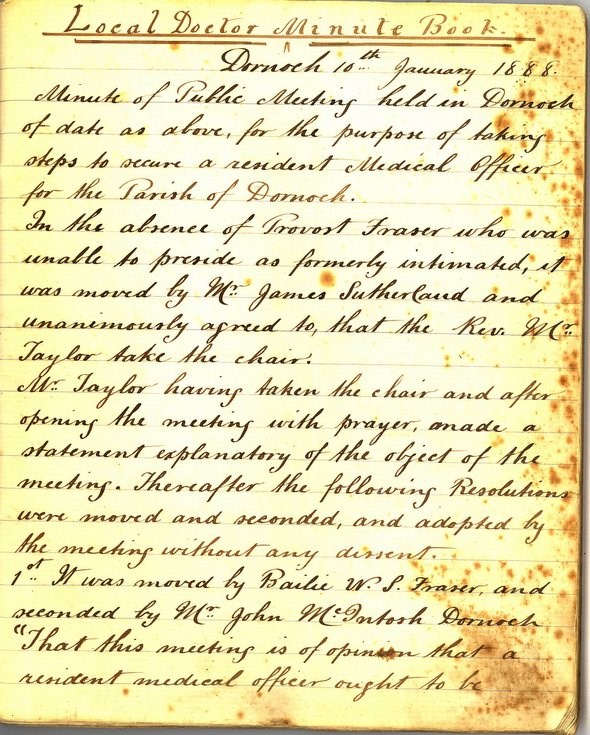 Local Doctor Minute Book.
Dornoch 10th January 1888.
Minute of Public Meeting held in Dornoch
of date as above, for the purpose of taking
steps to secure a resident Medical Officer
for the Parish of Dornoch.
In the absence of Provost Fraser who was
unable to preside as formerly intimated, it
was moved by Mr. James Sutherland and
unanimously agreed to, that the Rev. Mr.
Taylor take the chair.
Mr. Taylor having taken the chair and after
opening the meeting with prayer, made a
statement explanatory of the object of the
meeting. Thereafter the following Resolutions
were moved and seconded, and adopted by
the meeting without any dissent.
1st It was moved by Bailie W. S. Fraser, and
seconded by Mr. John McIntosh Dornoch
"That this meeting is of opinion that a
resident medical officer ought to be